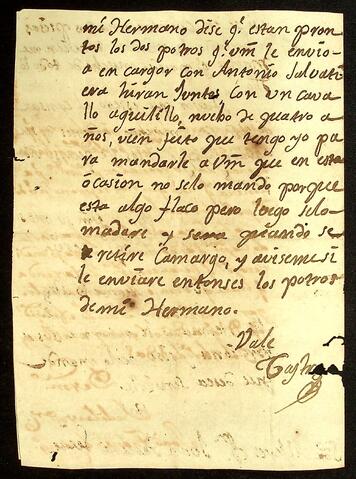 mi Hermano dise q.e estan pron
tos los dos potros q.e vm le envio
a en cargar con Antonio Salvati
era hiran Juntos con un cava
llo aguililla, nuebo de quatro a
ños, vien futo que tengo yo pa
ra mandarle a Vm que en esta
ócasion no selo mando porque
esta algo flaco pero luego selo
madare y sera quando se
retire Camargo, y aviseme si
le enviare entonses los potros
de mi Hermano.
Vale